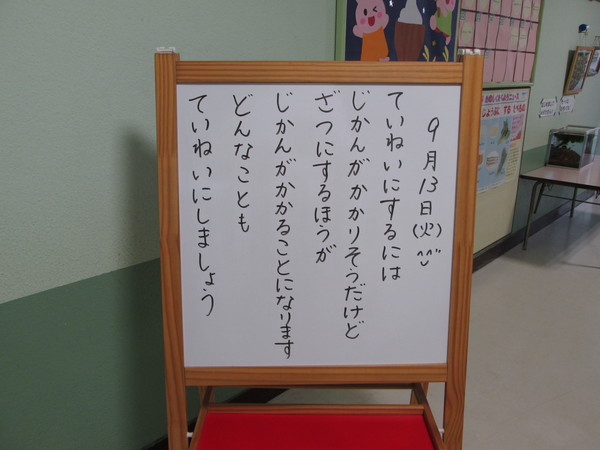 9月13日(火)
ていねいにするには
じかんがかかりそうだけど
ざつにするほうが
じかんがかかることになります
どんなことも
ていねいにしましょう